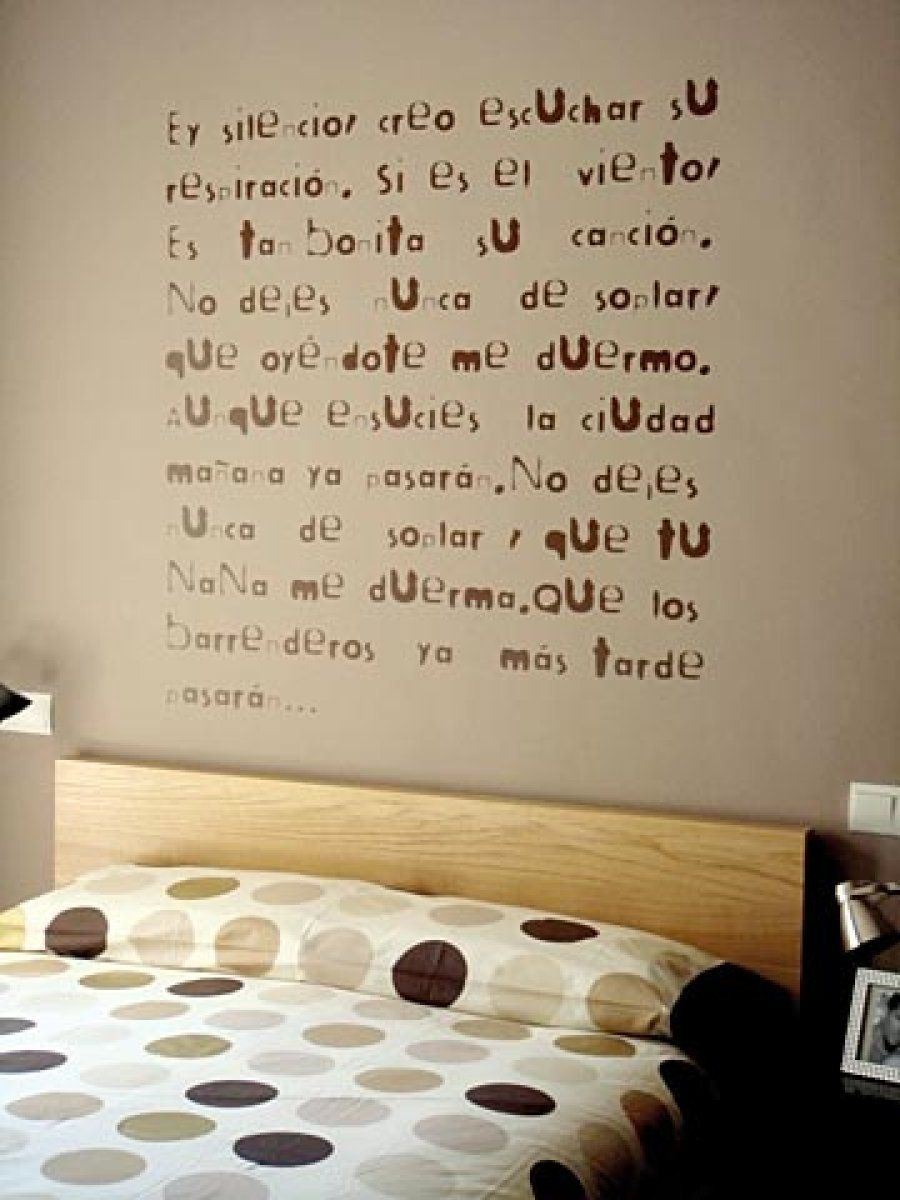 Ey silencio, creo escuchar su
respiración. Si es el viento,
Es tan bonita su canción.
No dejes nunca de soplar,
que oyéndote me duermo.
Aunque ensucies la ciudad
mañana ya pasarán.No dejes
nunca de soplar , que tu
NaNa me duerma.QUe los
barrenderos ya más tarde
pasarán...